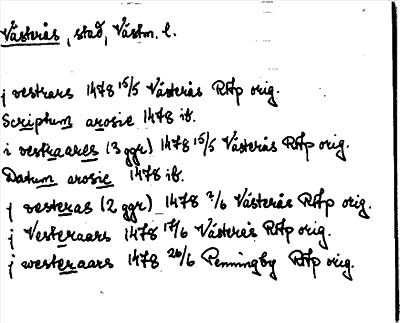 Västerås, stad, Västm. l.
j vestrars 1478 15/5 Västerås RAp orig.
Scriptum arosie 1478 ib.
i vestraares (3 ggr) 1478 15/5 Västerås RAp orig.
Datum arosie 1478 ib.
j vesteras (2 ggr) 1478 2/6 Västerås RAp orig.
j Vesteraars 1478 17/6 Västerås RAp orig.
j westeraars 1478 26/6 Penningby RAp orig.